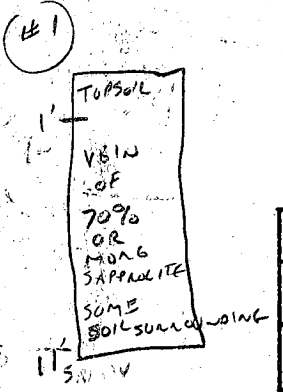 #1
TOPSOIL
1'
VEIN
OF
70%
OR
MORE
SAPPROLITE
SOME
SOIL SURROUNDING
11'